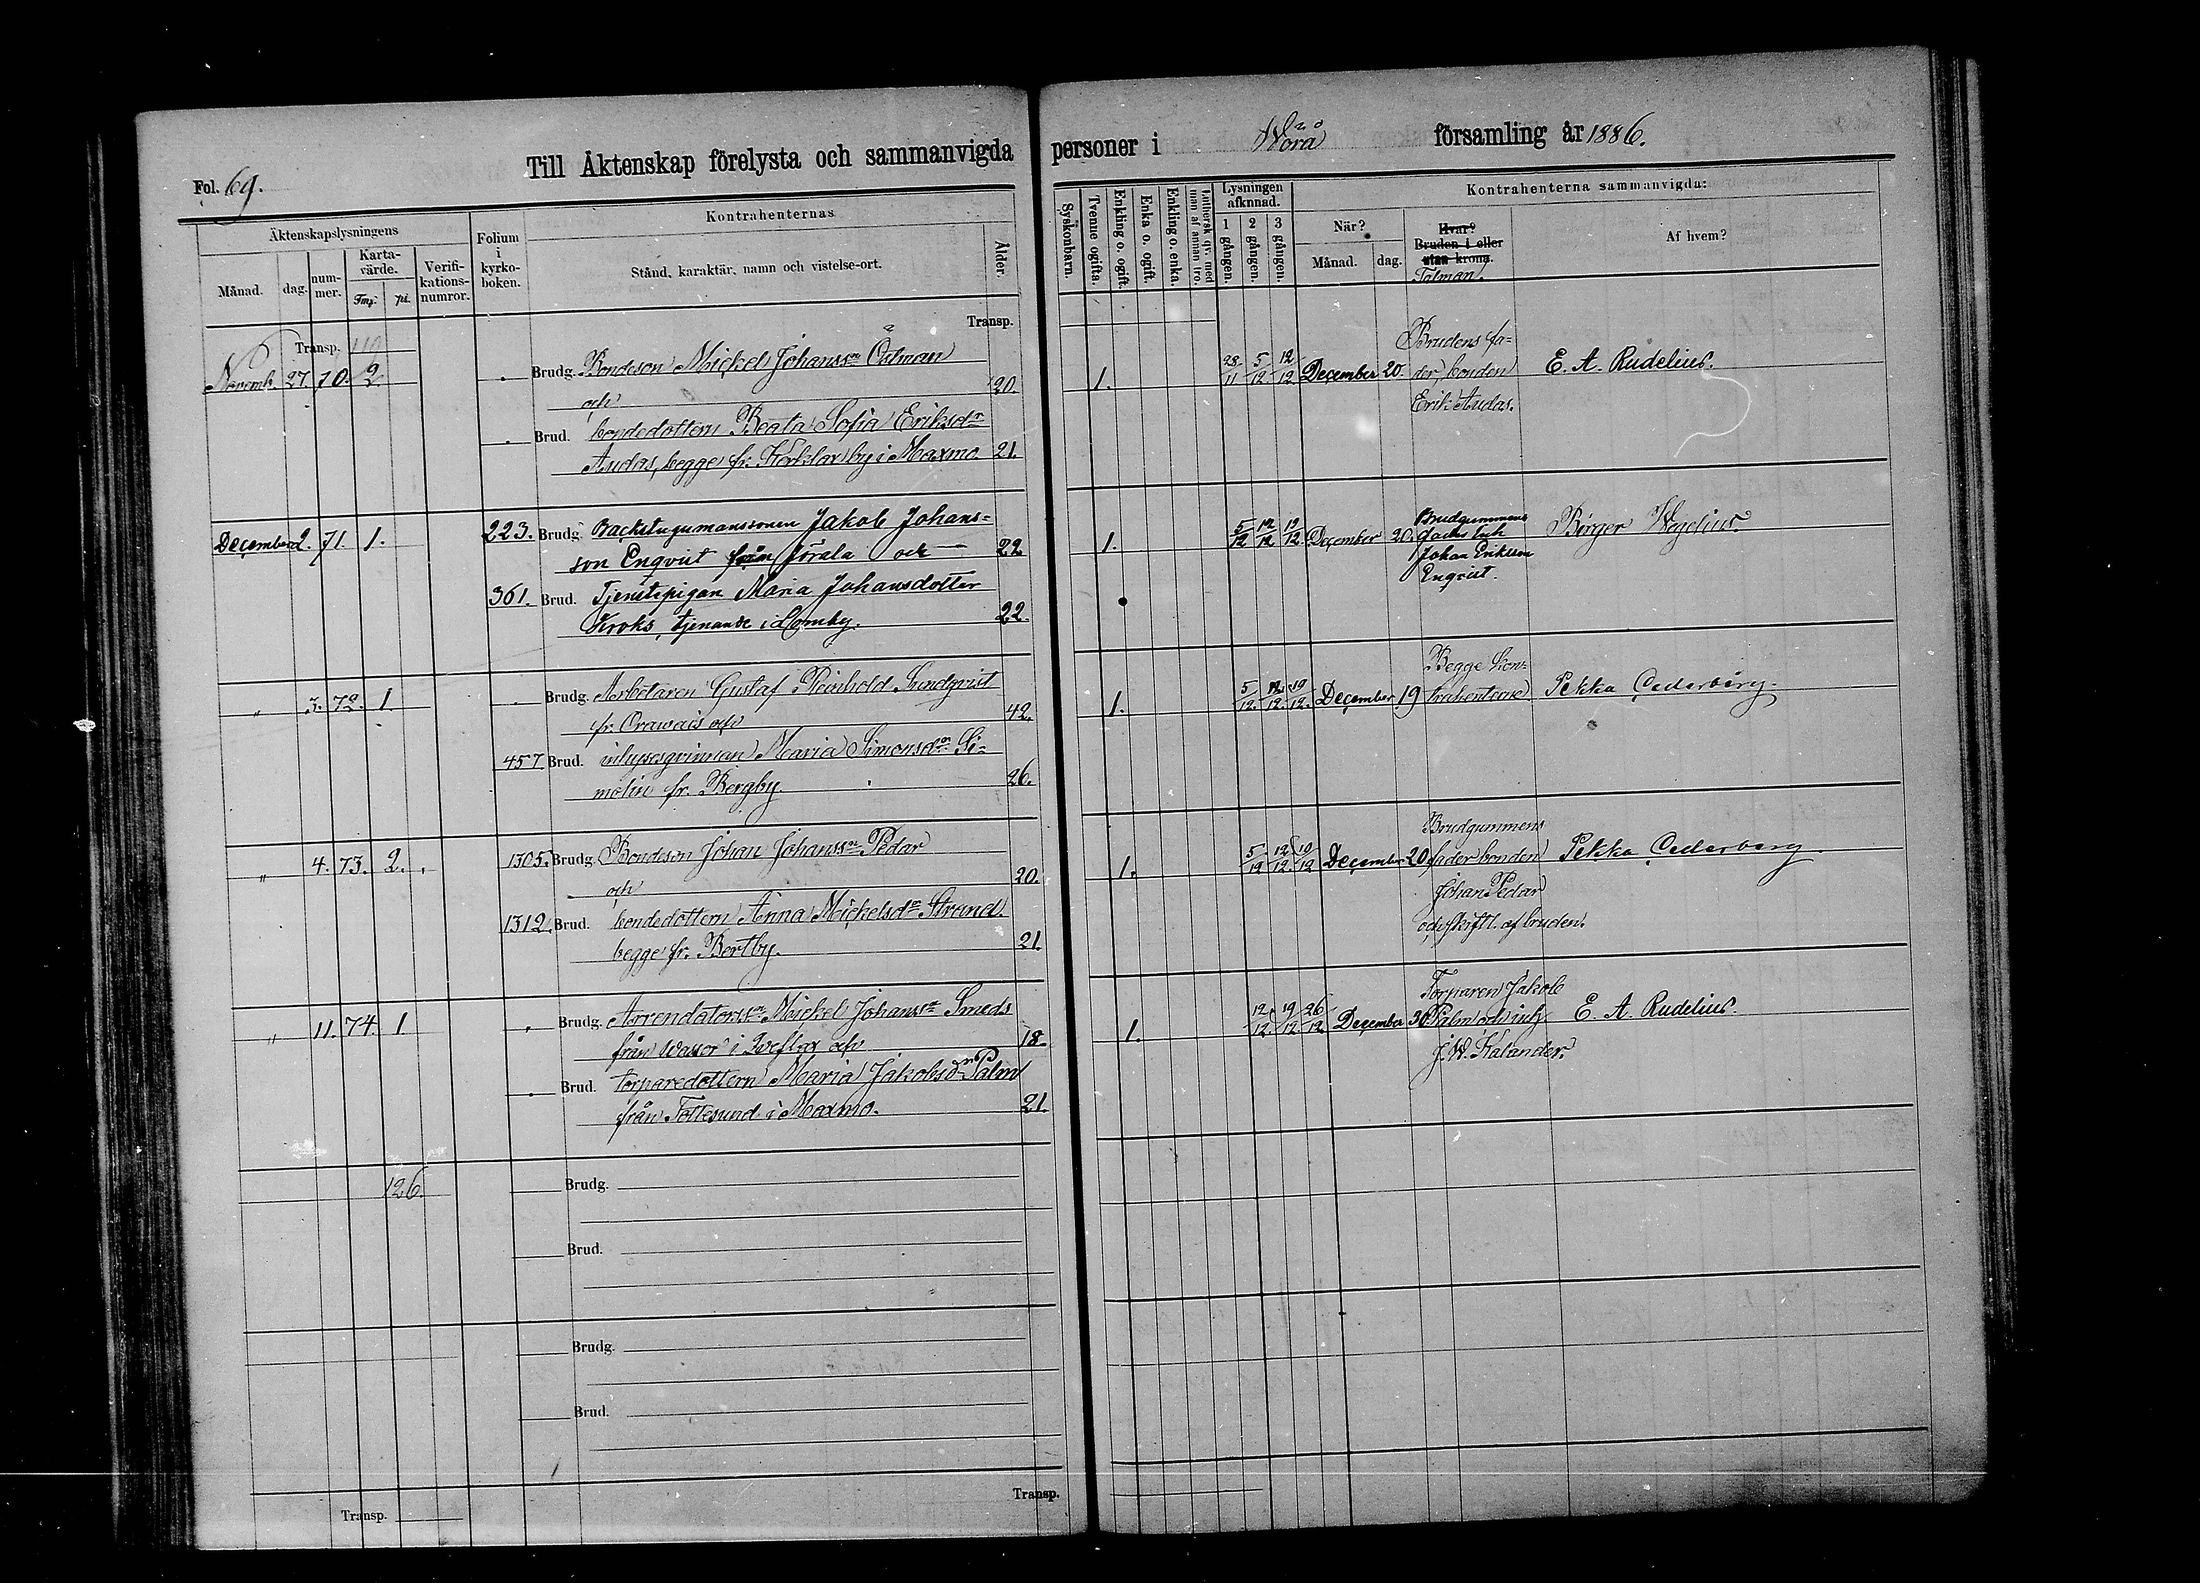 Fol. 69.
Till Äktenskap förelysta och sammanvigda personer i Wörå församling år 1886.
Äktenskapslysningens
Månad.
dag.
num-
mer.
Karta-
värde.
Tmp.
pi.
Verifi-
kations-
numror.
Folium
i
kyrko-
boken.
Kontrahenternas
Stånd, karaktär, namn och vistelse-ort.
Ålder.
Syskonbarn.
Tvenne ogifta.
Enkling o. ogift.
Enka o. ogift.
Enkling o. enka.
Luthersk qv. med
man af annan tro.
Lysningen
afknnad.
1 gången.
2 gången.
3 gången.
Kontrahenterna sammanvigda:
När?
Månad.
dag.
Hvar?
Bruden i eller
utan krona.
Talman.
Af hvem?
Transp. 119
Transp.
Novemb. 27. 70. 2
Brudg. Bondeson Mickel Johanssn Östman
och 20.
Brud. bondedottern Beata Sofia Eriksdr
Audas, begge fr. Kärklax by i Maxmo. 21.
1. 28/11 5/12 12/12 December 20.
Brudens fa-
der, bonden
Erik Audas.
E. A. Rudelius.
December 2. 71. 1.
223. Brudg. Backstugumanssonen Jakob Johans-
son Enqvist från Jörala och — 22.
361. Brud. Tjenstepigan Maria Johansdotter
Kroks, tjenande i Lomby. 22.
1. 5/12 12/12 19/12 December 20.
Brudgummens
Johan Eriksson
Enqvist.
Börger Wegelius
„ 3. 72. 1.
Brudg. Arbetaren Gustaf Reinhold Sundqvist
fr. Orawais och 42.
457 Brud. inhysesqvinnan Maria Simonsdr Si-
molin fr. Bergby. 26.
1. 5/12. 12/12. 19/12. December 19
Begge kon-
trahenterne
Pekka Cederberg.
„ 4. 73. 2.
1305. Brudg. Bondeson Johan Johanssn Pedar
och 20.
1312. Brud. bondedottern Anna Mickelsdr Strand.
begge fr. Bertby. 21.
1. 5/12 12/12. 19/12 December 20
Brudgummens
fader bonden
Johan Pedar
och skriftl. af bruden.
Pekka Cederberg
„ 11. 74. 1
Brudg. Arrendatorssn Mickel Johanssn Smeds
från Wassor i Qveflax och 18.
Brud. torparedottern Maria Jakobsdr Palm
från Tottesund i Maxmo. 21.
1. 12/12. 19/12. 26/12. December 30
Torparen Jakob
Palm och inh.
J. W. Kalander.
E. A. Rudelius.
126.
Brudg.
Brud.
Brudg.
Brud.
Transp.
Transp.